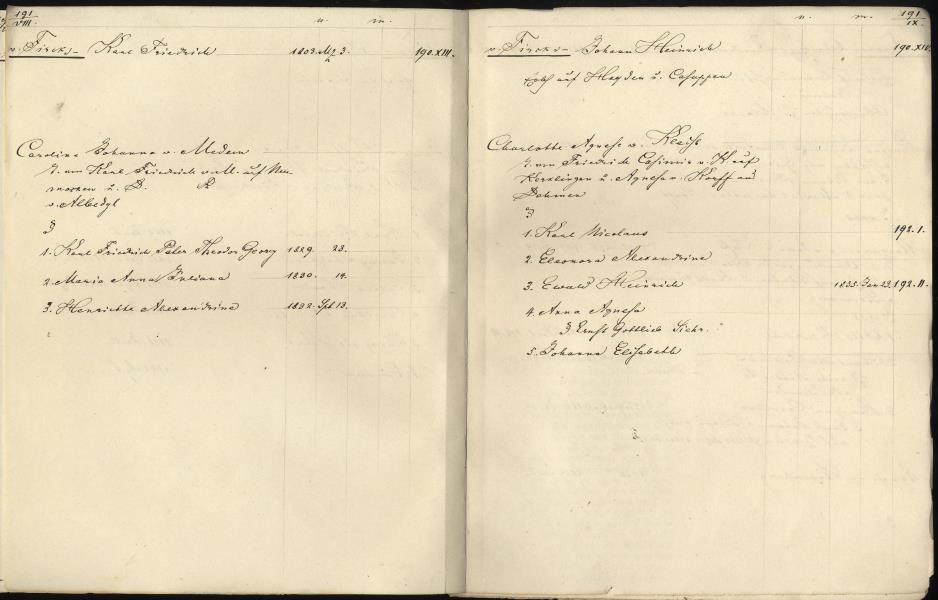 191
VIII.
n. m.
v. Fircks - Karl Friedrich 1803. 3. 190.XIII.
Caroline Johanna v. Medem
T. von Karl Friedrich v. M. auf
u. D. R
v. Albedyl
1. Karl Friedrich Peter Theodor Georg 1829. 23.
2. Maria Anna Juliana 1830. 14.
3. Henriette Alexandrine 1832. Spt 13.
191
IX.
n. m.
v. Fircks - Johann Heinrich 190.XIV.
Erbh auf Heyden u.
Charlotte Agnesa v. Kleist
T. von Friedrich Casimir v. K auf
Kerklingen u. Agnesa v. Korff aus
1. Karl Nicolaus 192.I.
2. Eleonora Alexandrina
3. Ewald Heinrich 1835. Jan 23. 192.II.
4. Anna Agnesa
Ernst Gottlieb
5. Johanna Elisabeth